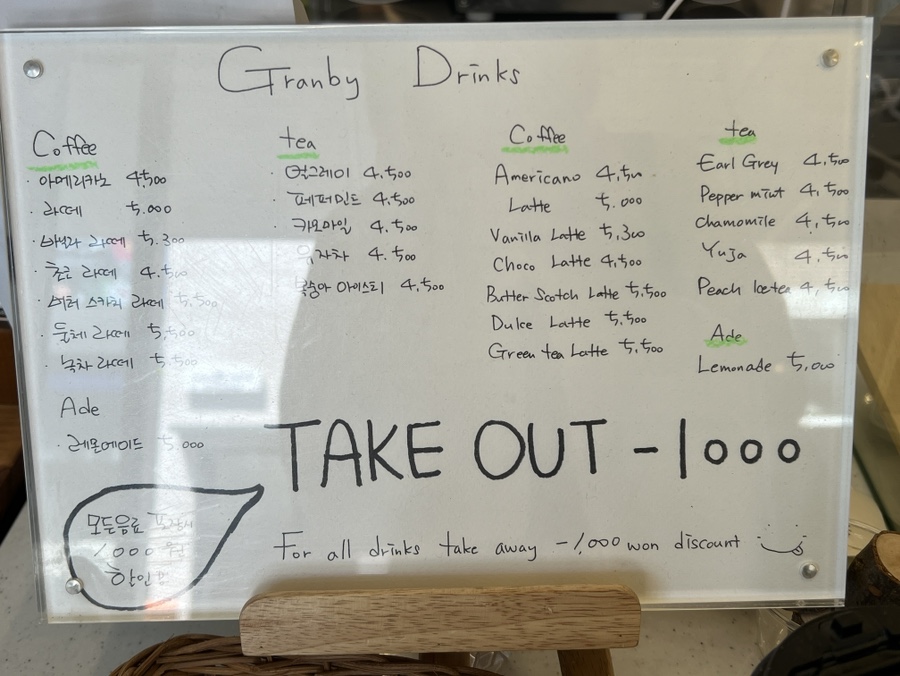 Granby Drinks
Coffee
· 아메리카노 4,500
· 라떼 5.000
· 바닐라 라떼 5.300
· 초코 라떼 4.500
· 버터 스카치 라떼 5,500
· 둘체 라떼 5,500
· 녹차 라떼 5,500
Ade
· 레몬에이드 5.000
tea
· 얼그레이 4.500
· 페퍼민트 4.500
· 캐모마일 4.500
· 유자차 4.500
· 복숭아 아이스티 4,500
Coffee
Americano 4,500
Latte 5.000
Vanilla Latte 5,300
Choco Latte 4,500
Butter Scotch Latte 5,500
Dulce Latte 5,500
Green tea Latte 5,500
tea
Earl Grey 4,500
Pepper mint 4,500
Chamomile 4,500
Yuja 4,500
Peach Icetea 4,500
Ade
Lemonade 5,000
TAKE OUT -1000
모든음료 포장시
1,000 원
할인
For all drinks take away -1,000 won discount